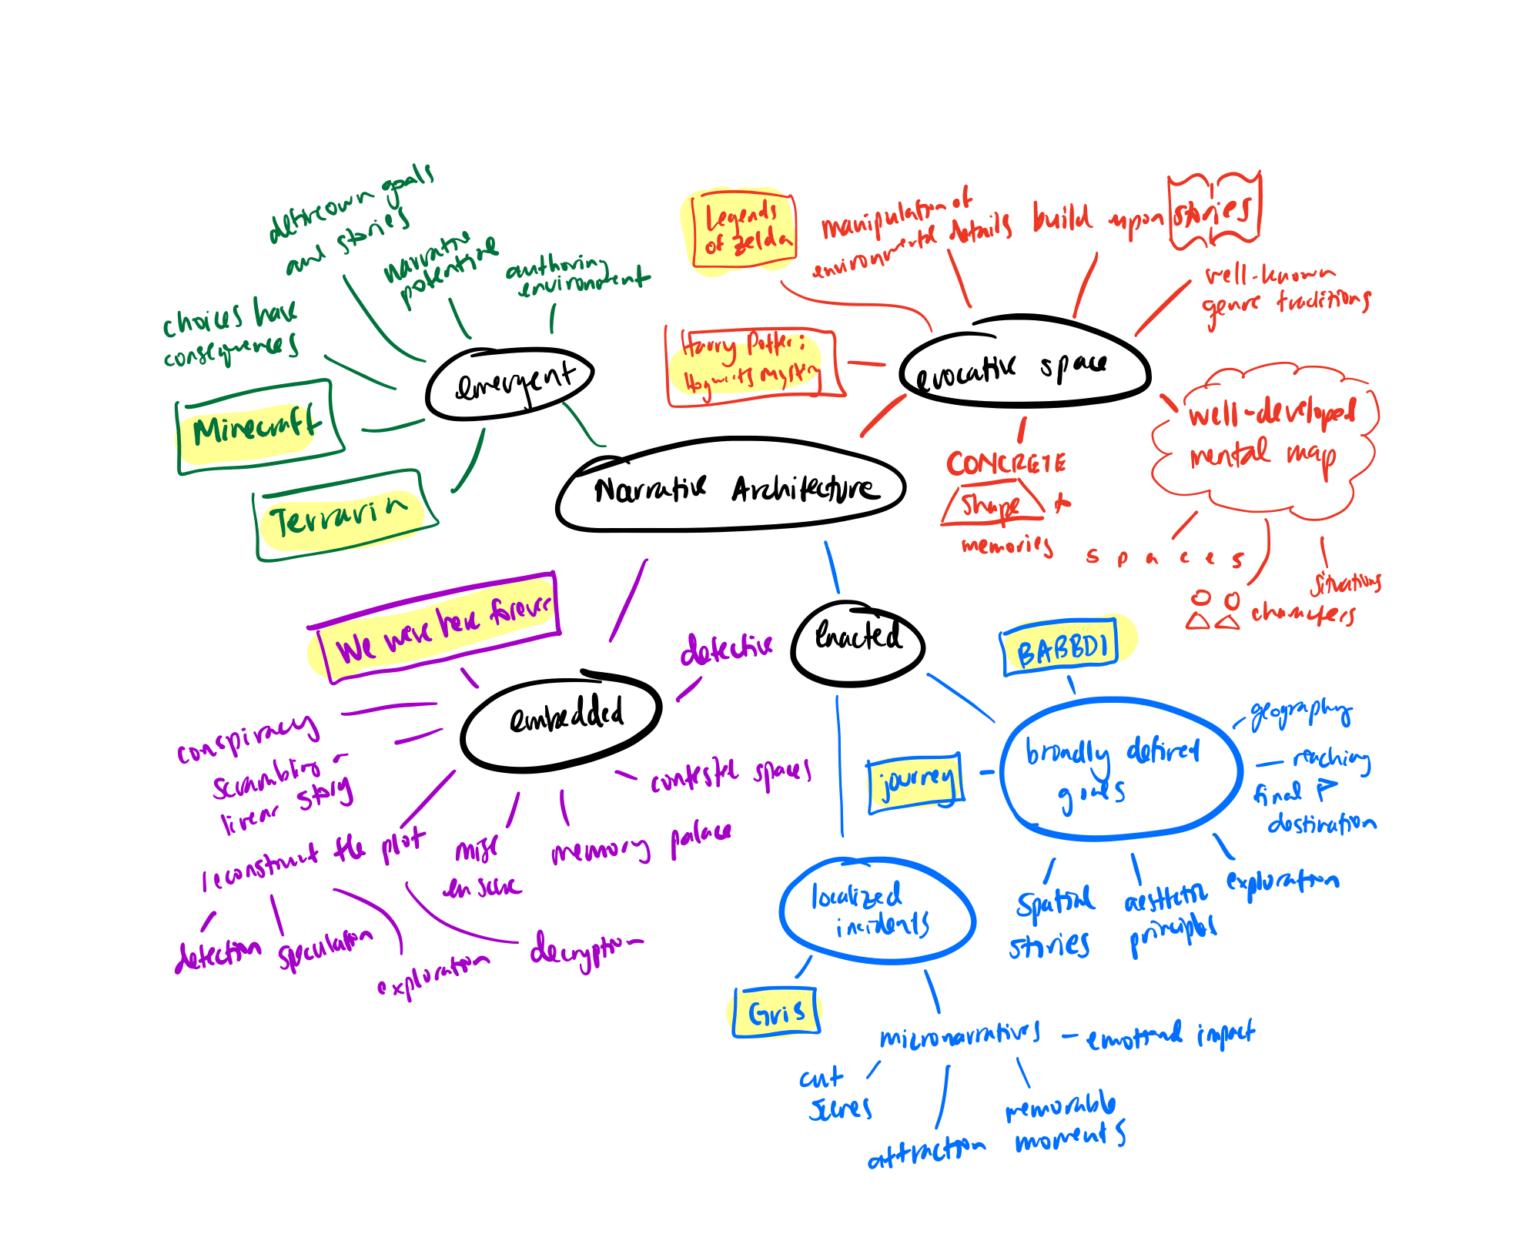 define own goals
and stories
narrative
potential
authoring
environment
choices have
consequences
emergent
Minecraft
Terraria
Legends
of Zelda
manipulation of
environmental details
build upon
stories
well-known
genre traditions
Harry Potter:
Hogwarts Mystery
evocative space
well-developed
mental map
CONCRETE
shape +
memories
spaces
characters
situations
Narrative Architecture
We were here forever
detective
embedded
conspiracy
scrambling
linear story
reconstruct the plot
mise
en scene
memory palace
contested spaces
detection
speculation
exploration
decryption
enacted
BABBDI
journey
broadly defined
goals
geography
reaching
final
destination
exploration
aesthetic
principles
spatial
stories
localized
incidents
Gris
micronarratives
emotional impact
cut
scenes
attraction
memorable
moments